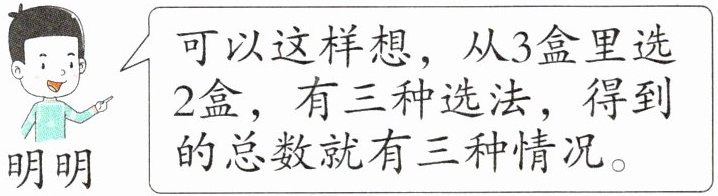 可以这样想，从3盒里选
2盒，有三种选法，得到
的总数就有三种情况。
明明